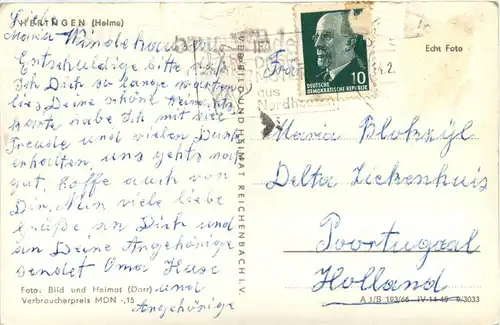 HERINGEN (Helme)
Echt Foto
Lieb.
Maria Windehau
Entschuldige bitte das
Ich Dich so lange warten
lies, Deine schöne
karte habe Ich mit viel
Freude und vielen Dank
erhalten, uns gehts noch
gut, hoffe auch von
Dir. Nun viele liebe
Grüße an Dich und
an Deine Angehörige
sendet Oma Huse
und
Angehörige
Foto: Bild und Heimat (Darr)
Verbraucherpreis MDN -,15
VEB BILD UND HEIMAT REICHENBACH I. V.
DEUTSCHE
DEMOKRATISCHE REPUBLIK
10
aus
Nordhausen
Maria Blokzijl
Delta Ziekenhuis
Poortugaal
Holland
A 1/B 193/66 IV-14-45 9/3033